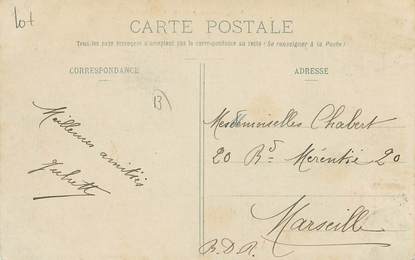 Lot
CARTE POSTALE
Tous les pays étrangers n'acceptent pas la correspondance au recto (Se renseigner à la Poste)
CORRESPONDANCE
ADRESSE
13
Meilleures amitiés
Juliette
Mesdemoiselles Chabert
20 Bd Mérentié 20
Marseille
B.D.R.